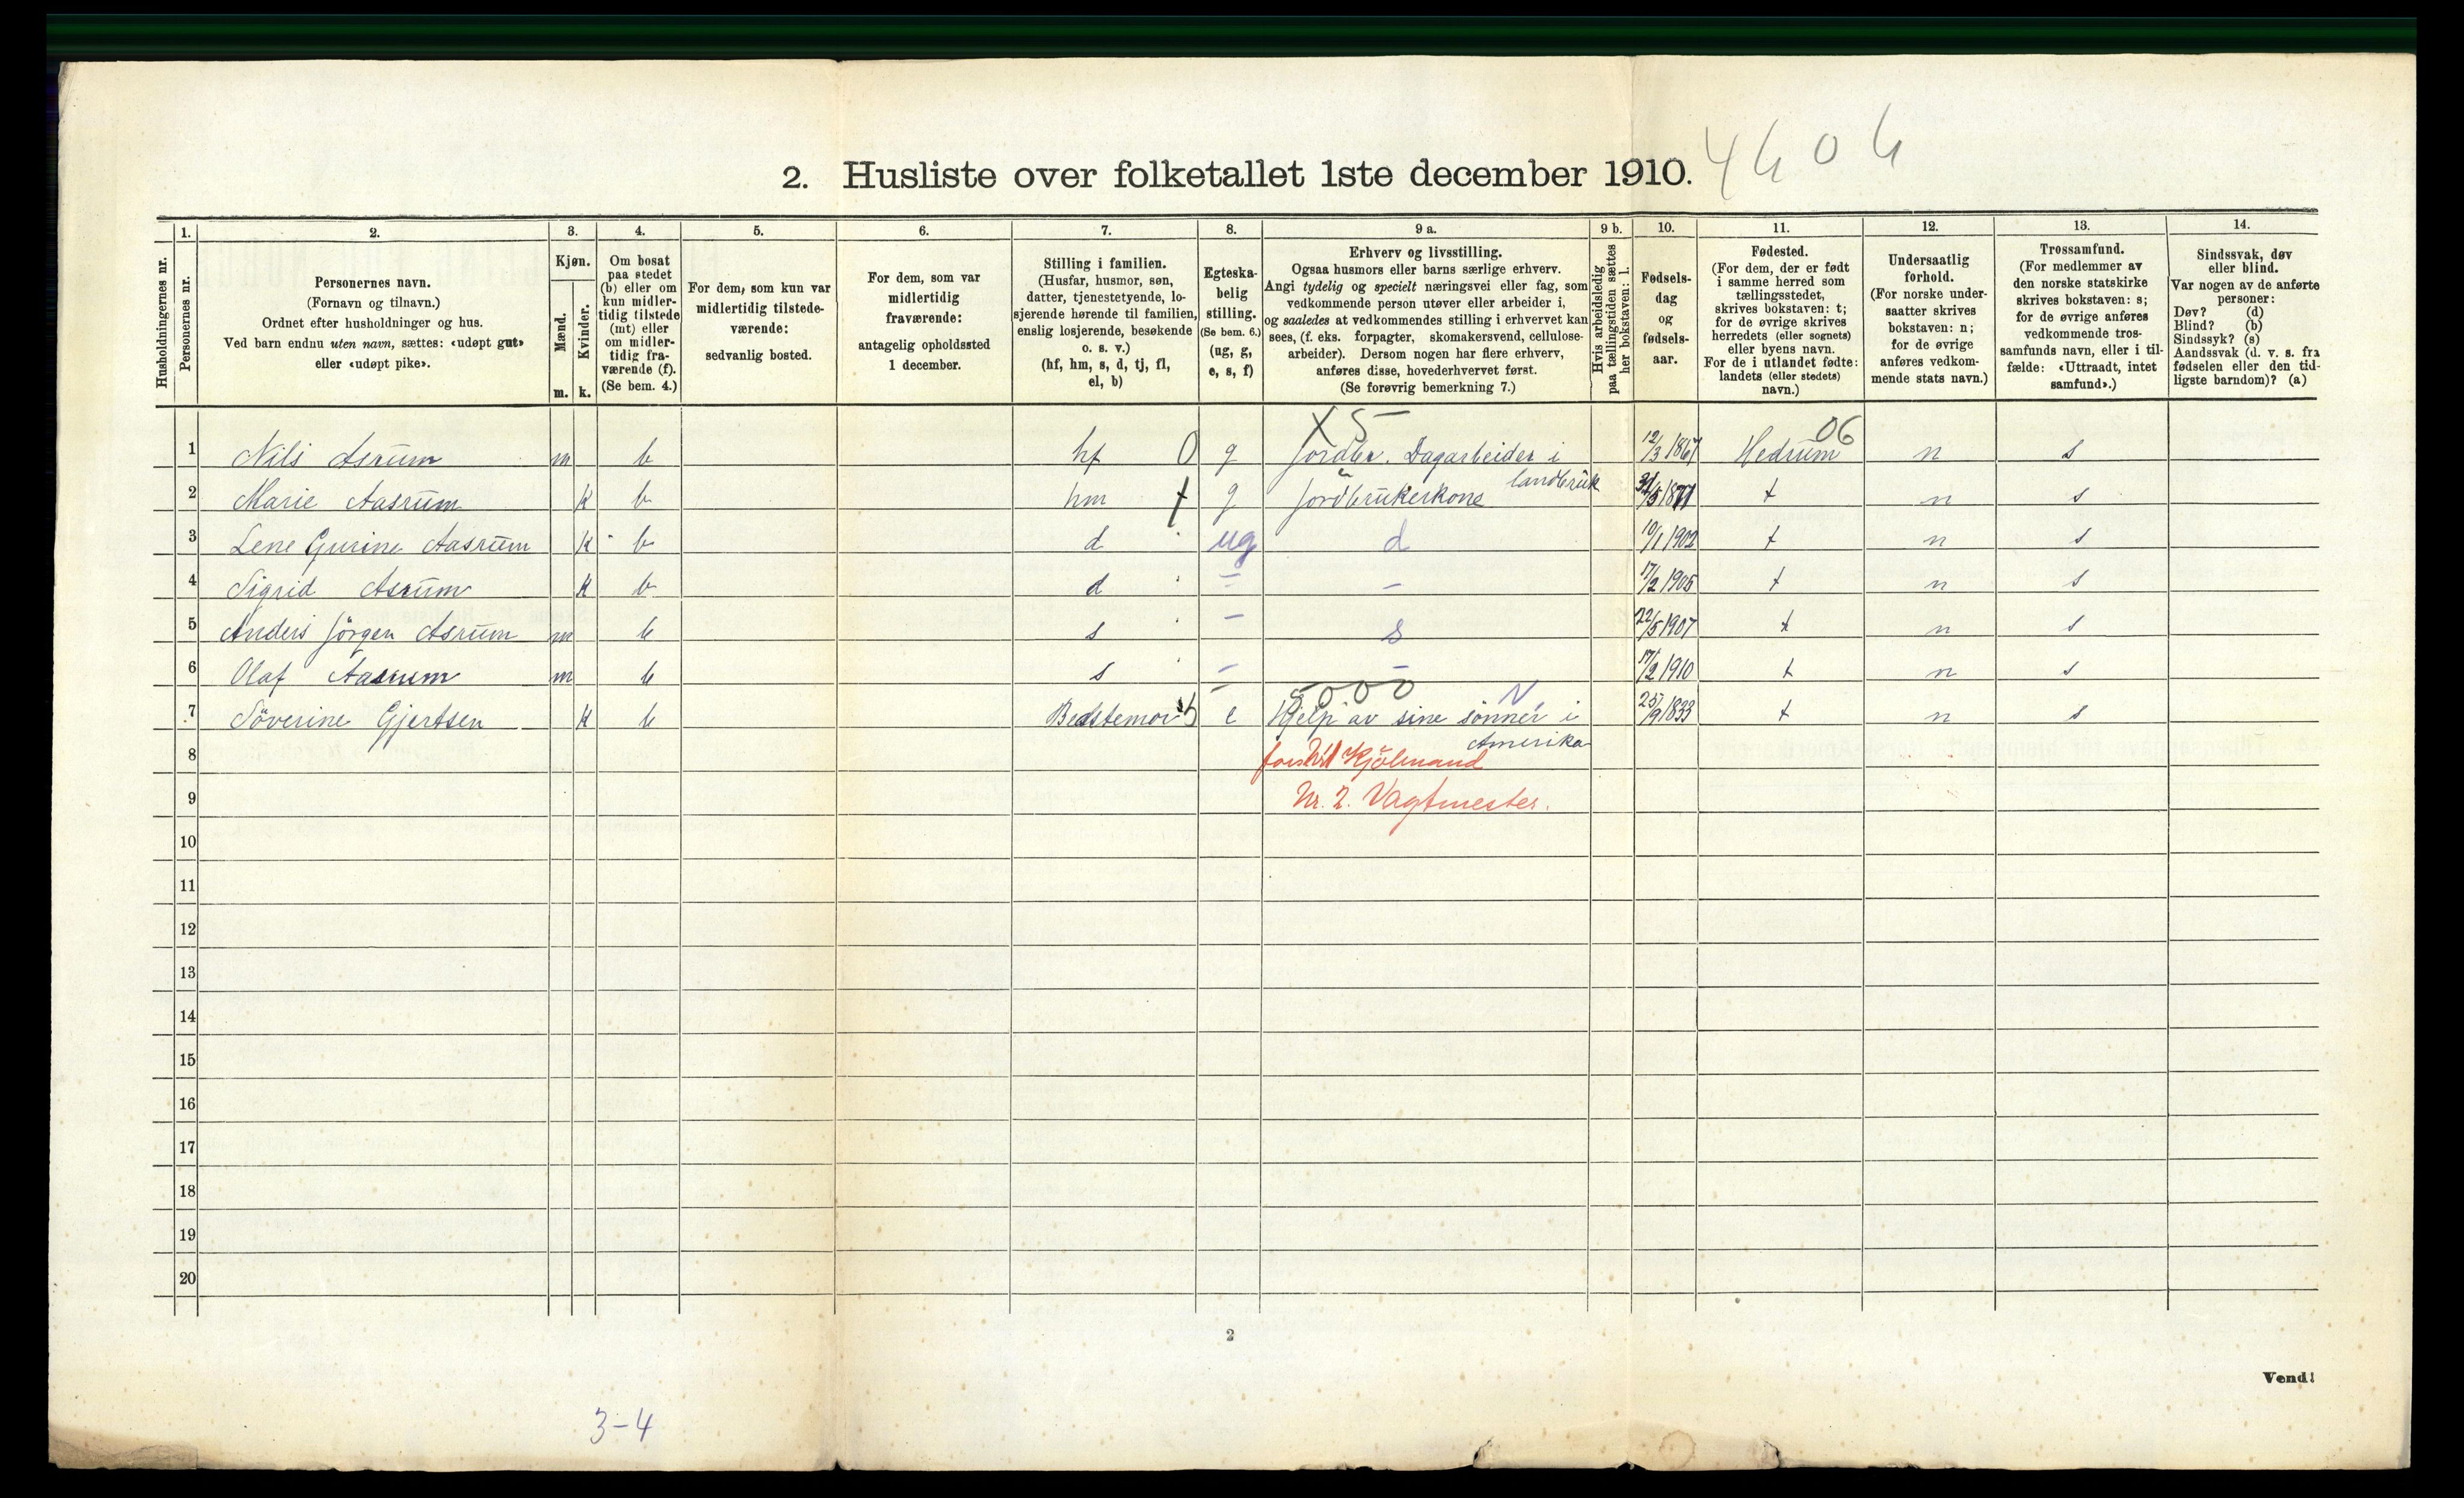 2. Husliste over folketallet 1ste december 1910.
Husholdningernes nr.
1.
Personernes nr.
2.
Personernes navn.
(Fornavn og tilnavn.)
Ordnet efter husholdninger og hus.
Ved barn endnu uten navn, sættes: «udøpt gut»
eller «udøpt pike».
3.
Kjøn.
Mænd.
m.
Kvinder.
k.
4.
Om bosat
paa stedet
(b) eller om
kun midler-
tidig tilstede
(mt) eller
om midler-
tidig fra-
værende (f).
(Se bem. 4.)
5.
For dem, som kun var
midlertidig tilstede-
værende:
sedvanlig bosted.
6.
For dem, som var
midlertidig
fraværende:
antagelig opholdssted
1 december.
7.
Stilling i familien.
(Husfar, husmor, søn,
datter, tjenestetyende, lo-
sjerende hørende til familien,
enslig losjerende, besøkende
o. s. v.)
(hf, hm, s, d, tj, fl,
el, b)
8.
Egteska-
belig
stilling.
(Se bem. 6.)
(ug, g,
e, s, f)
9 a.
Erhverv og livsstilling.
Ogsaa husmors eller barns særlige erhverv.
Angi tydelig og specielt næringsvei eller fag, som
vedkommende person utøver eller arbeider i,
og saaledes at vedkommendes stilling i erhvervet kan
sees, (f. eks. forpagter, skomakersvend, cellulose-
arbeider). Dersom nogen har flere erhverv,
anføres disse, hovederhvervet først.
(Se forøvrig bemerkning 7.)
9 b.
Hvis arbeidsledig
paa tællingstiden sættes
her bokstaven: l.
10.
Fødsels-
dag
og
fødsels-
aar.
11.
Fødested.
(For dem, der er født
i samme herred som
tællingsstedet,
skrives bokstaven: t;
for de øvrige skrives
herredets (eller sognets)
eller byens navn.
For de i utlandet fødte:
landets (eller stedets)
navn.)
12.
Undersaatlig
forhold.
(For norske under-
saatter skrives
bokstaven: n;
for de øvrige
anføres vedkom-
mende stats navn.)
13.
Trossamfund.
(For medlemmer av
den norske statskirke
skrives bokstaven: s;
for de øvrige anføres
vedkommende tros-
samfunds navn, eller i til-
fælde: «Uttraadt, intet
samfund».)
14.
Sindssvak, døv
eller blind.
Var nogen av de anførte
personer:
Døv? (d)
Blind? (b)
Sindssyk? (s)
Aandssvak (d. v. s. fra
fødselen eller den tid-
ligste barndom)? (a)
X 5 06
1 Nils Asrum m b hf 0 g Jordbr. Dagarbeider i 12/3 1867 Hedrum n s
landbruk
2 Marie Aasrum k b hm g Jordbrukerkone t n s
3 Lene Gurine Aasrum k b d ug d 10/1 1902 t n s
4 Sigrid Asrum k b d – – 17/2 1905 t n s
5 Anders Jörgen Asrum m b s – s 22/5 1907 t n s
6 Olaf Aasrum m b s – – 17/2 1910 t n s
7 Söverine Gjertsen k b Bedstemor e Hjelp av sine sönner i 25/9 1833 t n s
Amerika
8
9 Nr. 2. Vagtmester.
10
11
12
13
14
15
16
17
18
19
20
2
Vend!
3-4